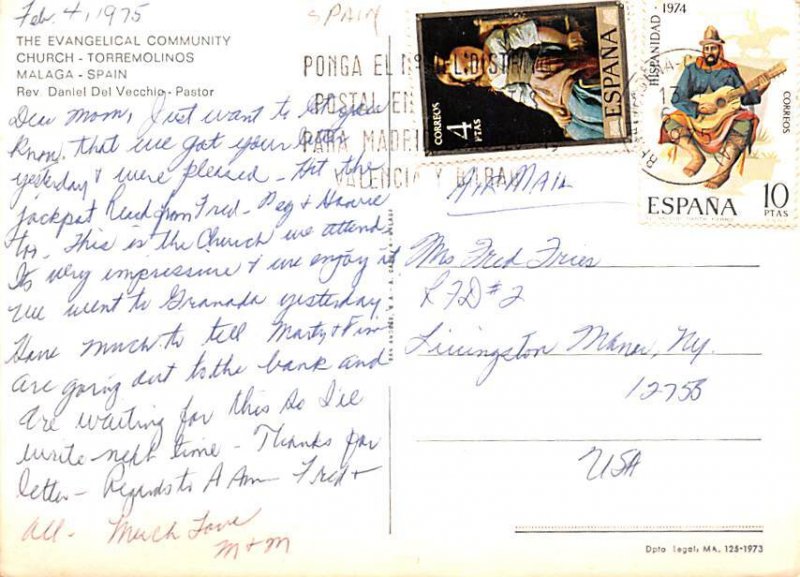 Feb. 4, 1975
SPAIN
THE EVANGELICAL COMMUNITY
CHURCH - TORREMOLINOS
MALAGA - SPAIN
Rev. Daniel Del Vecchio - Pastor
Dear Mom, Just want to let you
know, that we got your letter
yesterday & were pleased - Hit the
jackpot Read from Fred - Peg & Howie
too. This is the Church we attend
Its very impressive & we enjoy it
We went to Granada yesterday.
Have much to tell Marty &
are going out to the bank and
are waiting for this so I'll
write next time - Thanks for
letter - Regards to A Ann - Fred &
all - Much Love
M & M
PONGA EL Nº
POSTAL EN
PARA MADRI
VALENCIA Y BILBAO
CORREOS
4
PTAS
ESPAÑA
HISPANIDAD - 1974
CORREOS
ESPAÑA
10
PTAS
AIR MAIL
Mrs Fred Fries
RFD #2
Livingston Manor, Ny.
12758
USA
Dpto Legal, MA, 125-1973